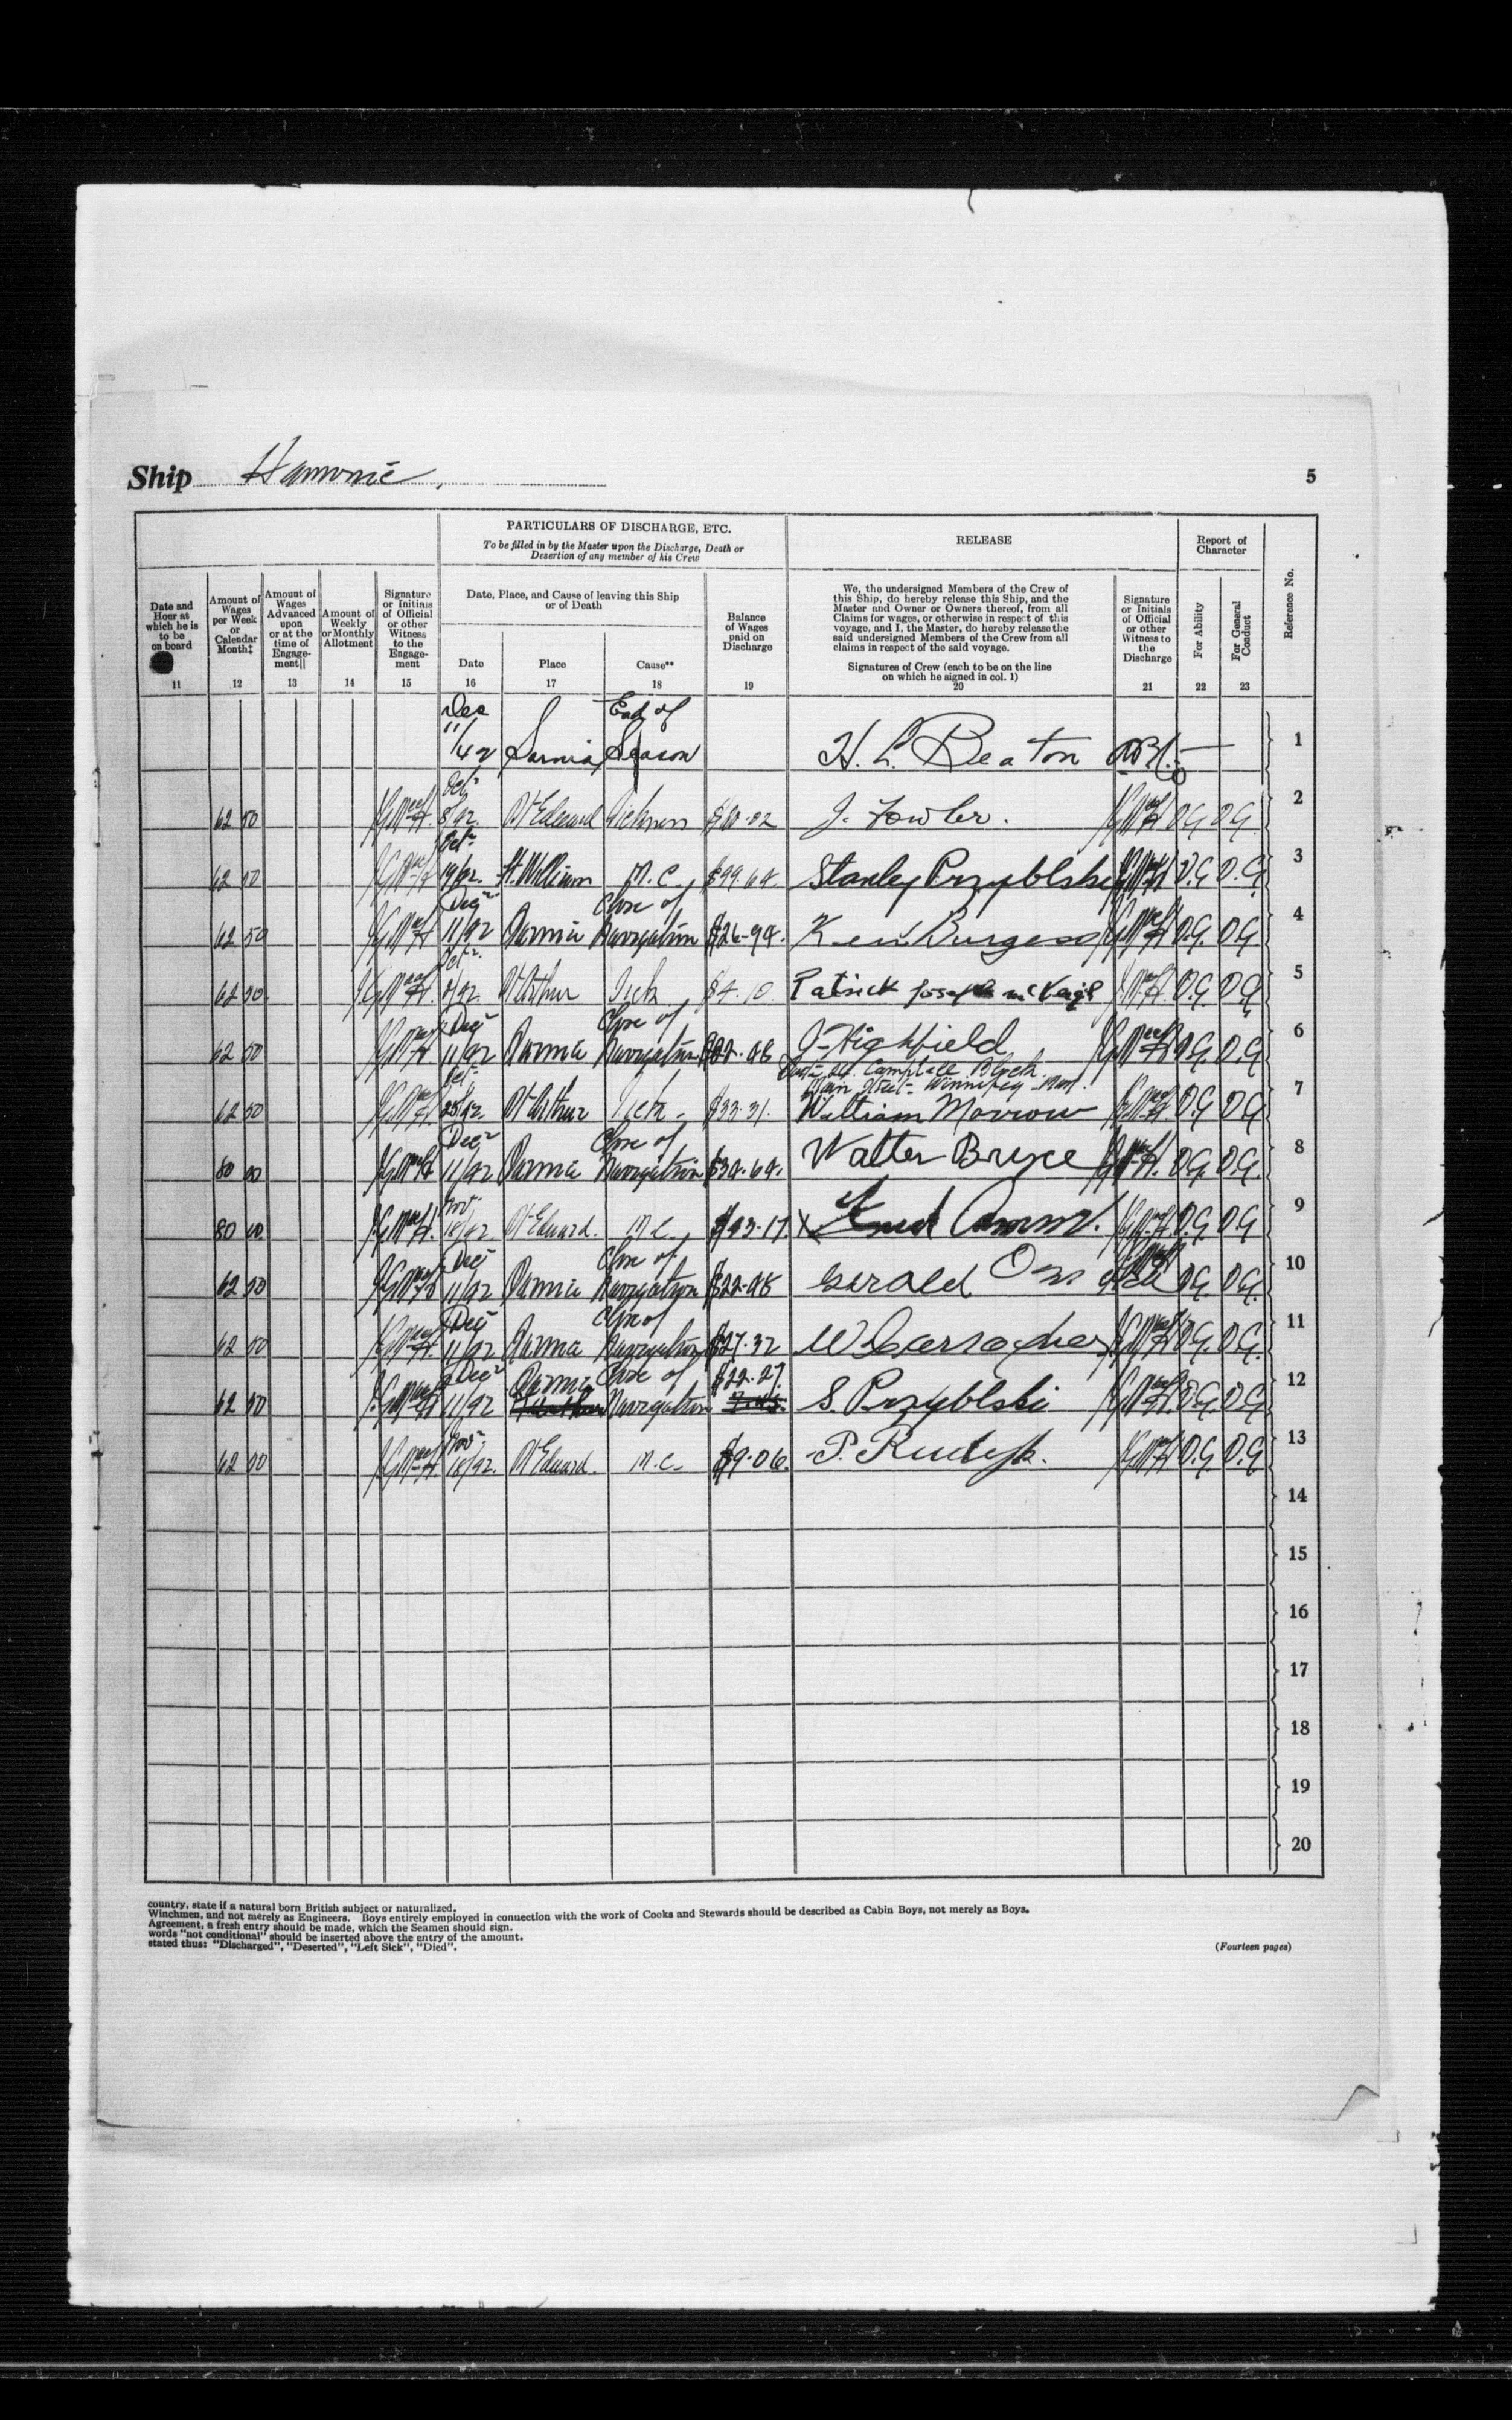 Ship Hamonic.
5
PARTICULARS OF DISCHARGE, ETC.
To be filled in by the Master upon the Discharge, Death or
Desertion of any member of his Crew
RELEASE
Report of
Character
Reference No.
Date and
Hour at
which he is
to be
on board
11
Amount of
Wages
per Week
or
Calendar
Month‡
12
Amount of
Wages
Advanced
upon
or at the
time of
Engage-
ment||
13
Amount of
Weekly
or Monthly
Allotment
14
Signature
or Initials
of Official
or other
Witness
to the
Engage-
ment
15
Date, Place, and Cause of leaving this Ship
or of Death
Date
16
Place
17
Cause**
18
Balance
of Wages
paid on
Discharge
19
We, the undersigned Members of the Crew of
this Ship, do hereby release this Ship, and the
Master and Owner or Owners thereof, from all
Claims for wages, or otherwise in respect of this
voyage, and I, the Master, do hereby release the
said undersigned Members of the Crew from all
claims in respect of the said voyage.
Signatures of Crew (each to be on the line
on which he signed in col. 1)
20
Signature
or Initials
of Official
or other
Witness to
the
Discharge
21
For Ability
22
For General
Conduct
23
Dec 11/42 Sarnia End of Season H. L. Beaton 1
62 50 8/42. Pt Edward Sickness J. Fowler. V.G V.G. 2
62 50 Oct 19/42. Ft. William M.C., $99.64. Stanley Przyblski V.G V.G 3
62 50 Dec 11/42 Sarnia Close of Navigation $26-94. Ken. Burgess V.G. V.G 4
62 50 Pt Arthur Sick $4.10 Patrick Joseph V.G. V.G 5
62 50 Dec 11/42 Sarnia Close of Navigation J. Highfield V.G. V.G 6
Main Street - Winnipeg - Man.
62 50 Pt Arthur Sick - $33.31. William Morrow V.G V.G 7
80 00 Dec 11/42 Sarnia Close of Navigation $34.64. Walter Bryce V.G. V.G. 8
80 00 Nov. 18/42 Pt Edward. M.C., $43-17. X V.G. V.G 9
62 50 Dec 11/42 Sarnia Close of Navigation $22-48 Gerald V.G V.G. 10
62 50 Dec 11/42 Sarnia Close of Navigation $27.32 V.G. V.G. 11
62 50 Dec 11/42 Sarnia Close of Navigation $22.27 S. Przyblski V.G. V.G. 12
62 50 Nov 18/42. Pt Edward. M.C. $9.06. V.G. V.G. 13
14
15
16
17
18
19
20
country, state if a natural born British subject or naturalized.
Winchmen, and not merely as Engineers. Boys entirely employed in connection with the work of Cooks and Stewards should be described as Cabin Boys, not merely as Boys.
Agreement, a fresh entry should be made, which the Seamen should sign.
words "not conditional" should be inserted above the entry of the amount.
stated thus: "Discharged", "Deserted", "Left Sick", "Died".
(Fourteen pages)